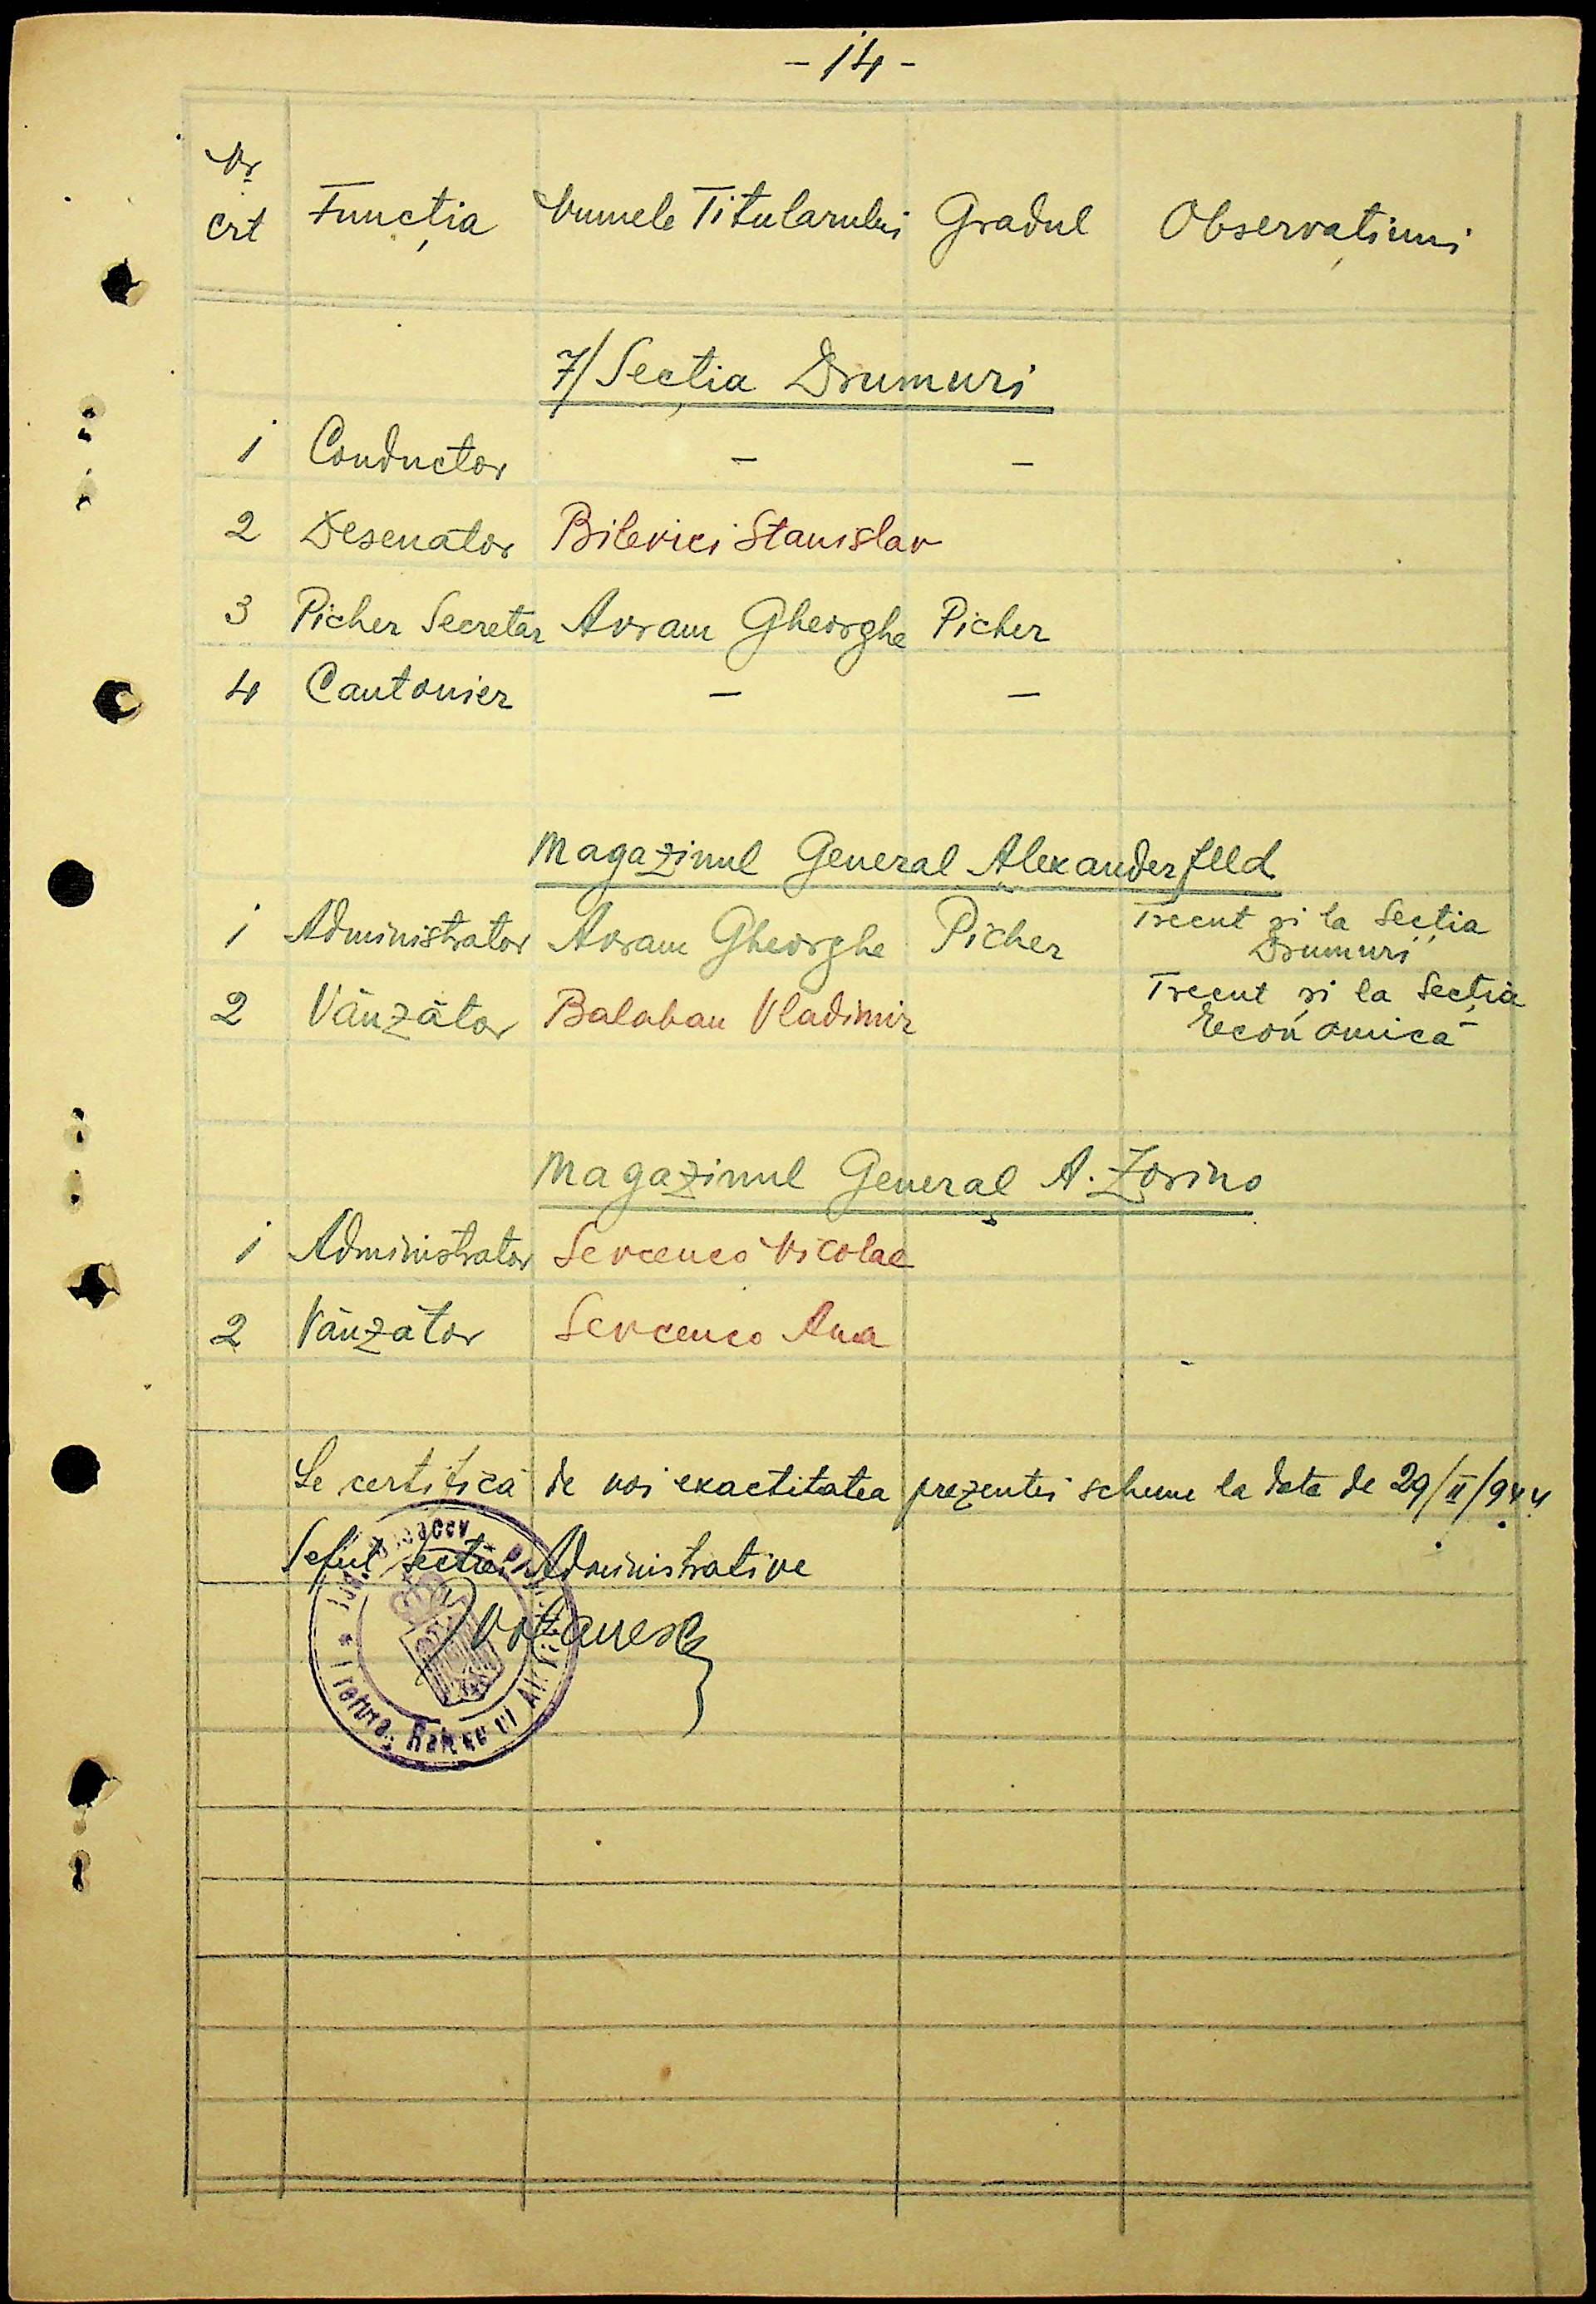 - 14 -
Nr
crt Funcția Numele Titularului Gradul Observațiuni
7/ Secția Drumuri
1 Conductor - -
2 Desenator Bilevici Stanislav
3 Picher Secretar Avram Gheorghe Picher
4 Cantonier - -
Magazinul General Alexanderfeld
1 Administrator Avram Gheorghe Picher Trecut și la Secția
Drumuri
2 Vânzător Balaban Vladimir Trecut și la Secția
Economică
Magazinul General A. Zorino
1 Administrator Sevcenco Nicolae
2 Vânzător Sevcenco Ana
Se certifică de noi exactitatea prezentei scheme la data de 29/II/944
Șeful secției Administrative